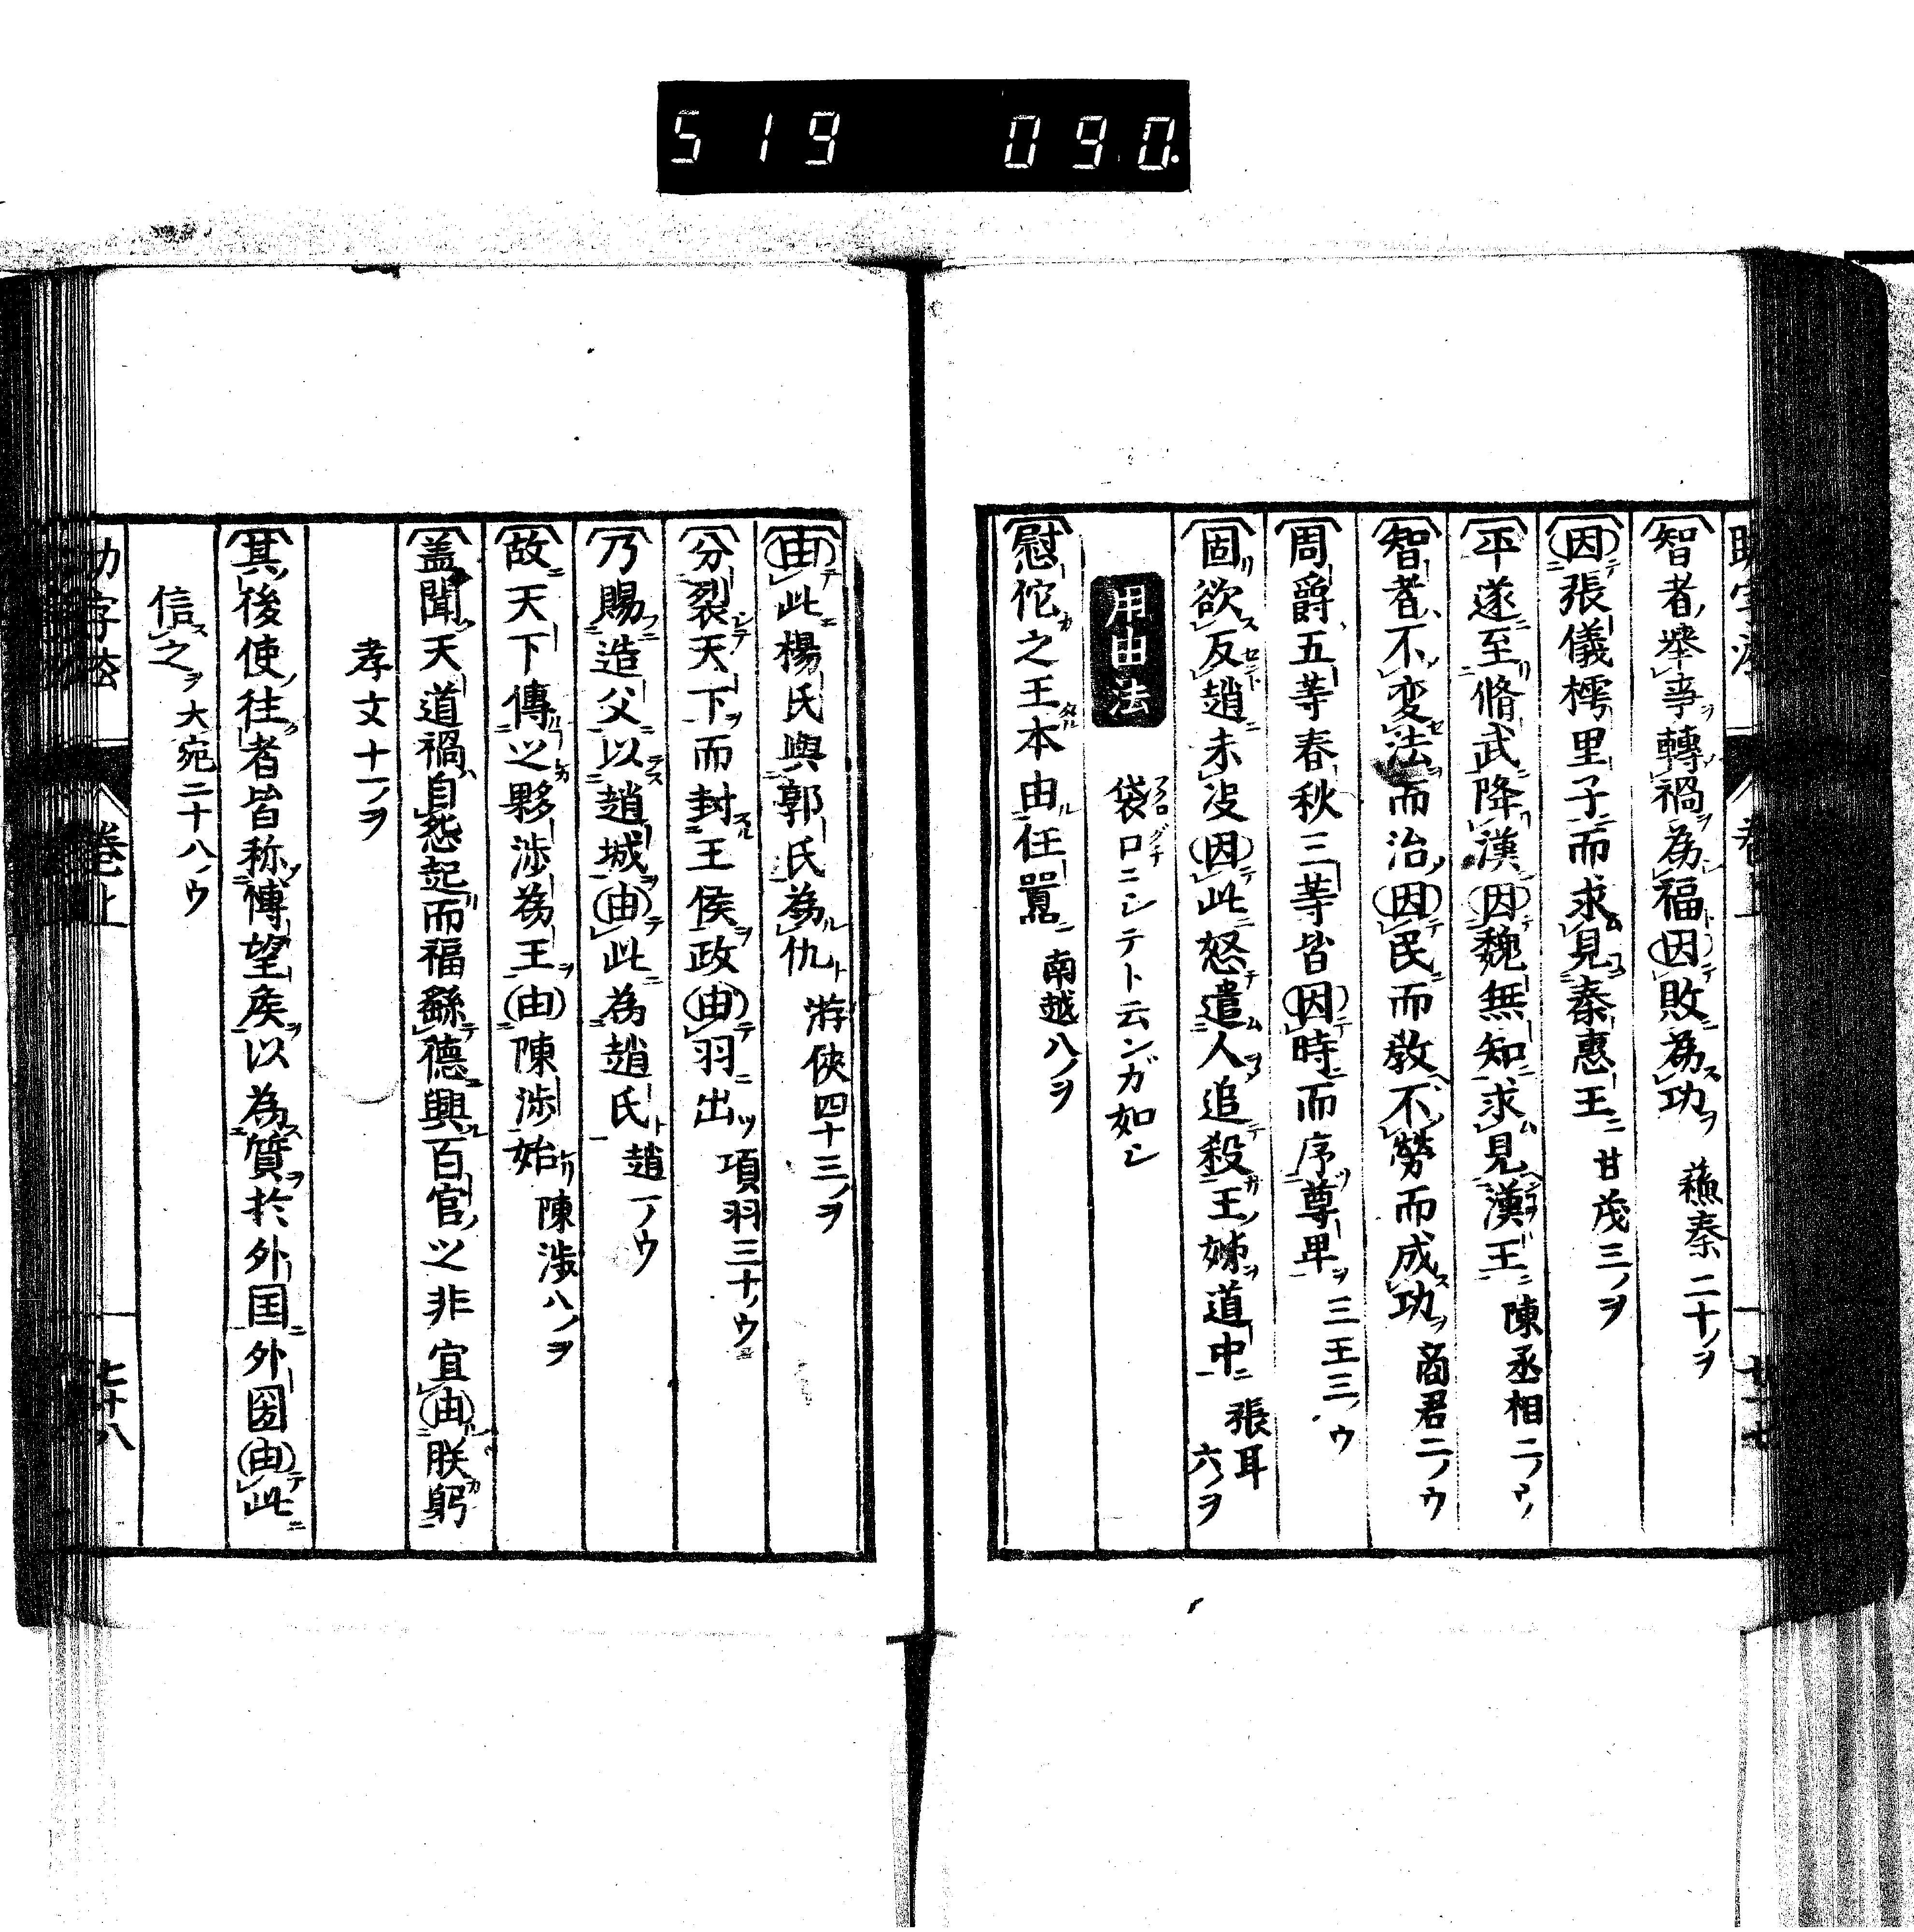 519 090.
智者挙事轉禍為福因敗為功 蘓秦二十ノヲ
因張儀樗里子而求見秦惠王 甘茂三ノヲ
平遂至脩武降漢因魏無知求見漢王 陳丞相二ノウ
智者不変法而治因民而教不勞而成功 商君二ノウ
周爵五等春秋三等皆因時而序尊卑 三王三ノウ
固欲反趙未决因此怒遣人追殺王姊道中 張耳六ノヲ
用由法 袋口ニシテト云ンガ如シ
慰佗之王本由任囂 南越八ノヲ
由此楊氏與郭氏為仇 游侠四十三ノヲ
分裂天下而封王侯政由羽出 項羽三十ノウ
乃賜造父以趙城由此為趙氏 趙一ノウ
故天下傳之夥渉為王由陳渉始 陳渉八ノヲ
盖聞天道禍自怨起而福繇德興百官之非宜由朕躬
孝文十一ノヲ
其後使往者皆称博望矦以為質於外国外國由此
信之 大宛二十八ノウ
巻上
七十八